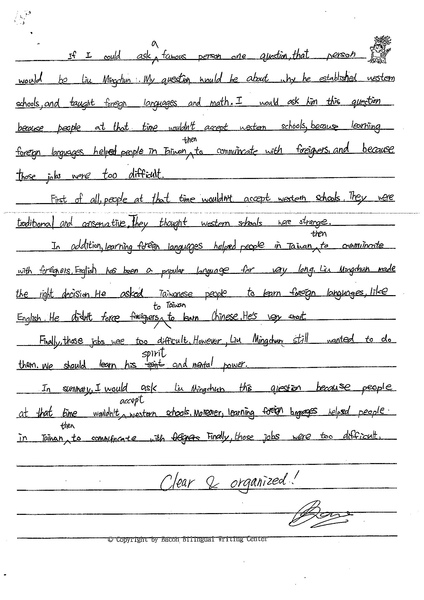 a
If I could ask famous person one question, that person
would be Liu Mingchun. My question would be about why he established western
schools, and taught foreign languages and math. I would ask him this question
because people at that time wouldn't accept western schools, because learning
then
foreign languages helped people in Taiwan to communicate with foreigners, and because
those jobs were too difficult.
First of all, people at that time wouldn't accept western schools. They were
traditional and conservative. They thought western schools were strange.
then
In addition, learning foreign languages helped people in Taiwan to communicate
with foreigners. English has been a popular language for very long. Liu Mingchun made
the right decision. He asked Taiwanese people to learn foreign languages, like
to Taiwan
English. He didn't force foreigners to learn Chinese. He's very
Finally, those jobs were too difficult. However, Liu Mingchun still wanted to do
spirit
them. We should learn his and mental power.
In summary, I would ask Liu Mingchun this question because people
accept
at that time wouldn't western schools. Moreover, learning foreign languages helped people
then
in Taiwan to communicate with foreigners. Finally, those jobs were too difficult.
Clear & organized!
© Copyright by Bacon Bilingual Writing Center